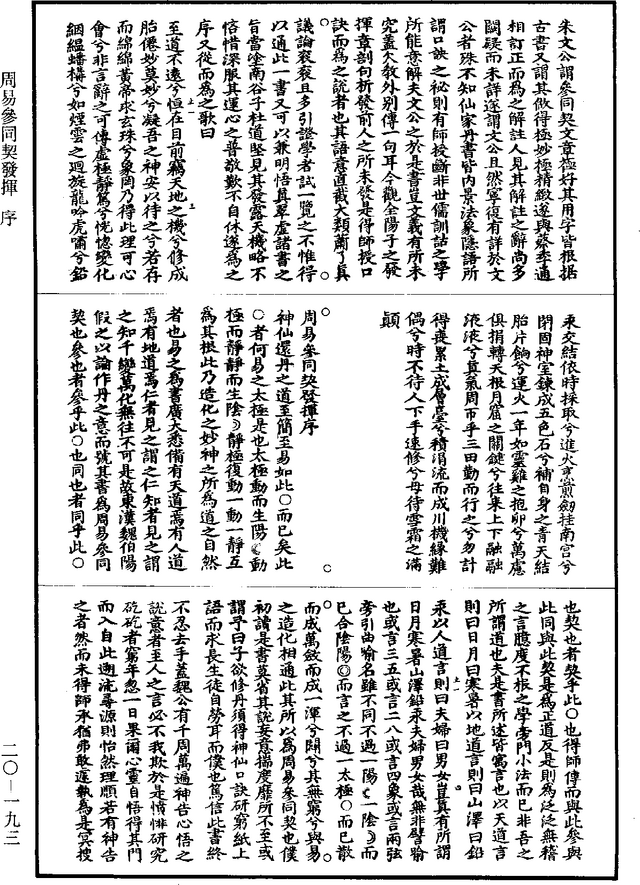 周易參同契發揮 序
二〇—一九三
朱文公謂參同契文章極好其用字皆根据
古書又謂其做得極妙極精緻遂與蔡季通
相訂正而為之解註人見其解註之辭尚多
闕疑而未詳遂謂文公且然寧復有詳於文
公者殊不知仙家丹書皆內景法象隱語所
謂口訣之秘則有師授斷非世儒訓詁之學
所能意解夫文公之於是書豈文義有所未
究蓋欠教外別傳一句耳今觀全陽子之發
揮章剖句析發前人之所未發是得師授口
訣而為之說者也其語意直截大類蕭了真
議論袞袞且多引證學者試一覽之不惟得
以通此一書又可以兼明悟真翠虛諸書之
旨當塗南谷子杜道堅見其發露天機略不
恡惜深服其運心之普敬歎不自休遂為之
序又從而為之歌曰
至道不遠兮恒在目前竊天地之機兮修成
胎僊妙莫妙兮凝吾之神安以待之兮若存
而綿綿黃帝求玄珠兮象罔乃得此理可心
會兮非言辭之可傳虛極靜篤兮恍惚變化
絪縕蟠構兮如煙雲之迴旋龍吟虎嘯兮鉛
汞交結依時採取兮進火烹煎劒挂南宮兮
閉固神室鍊成五色石兮補自身之青天結
胎片餉兮運火一年如靈雞之抱卵兮萬慮
俱捐轉天根月窟之關鍵兮往來上下融融
液液兮真氣周帀乎三田勤而行之兮勿計
得喪累土成層臺兮積涓流而成川機緣難
偶兮時不待人下手速修兮毋待雪霜之滿
顛
周易參同契發揮序
神仙還丹之道至簡至易如此○而已矣此
○者何易之太極是也太極動而生陽動
極而靜靜而生陰靜極復動一動一靜互
為其根此乃造化之妙神之所為道之自然
者也易之為書廣大悉備有天道焉有人道
焉有地道焉仁者見之謂之仁知者見之謂
之知千變萬化無往不可是故東漢魏伯陽
假之以論作丹之意而號其書為周易參同
契也參也者參乎此○也同也者同乎此○
也契也者契乎此○也得師傳而與此參與
此同與此契是為正道反是則為泛泛無稽
之言臆度不根之學旁門小法而已非吾之
所謂道也夫是書所述皆寓言也以天道言
則曰日月曰寒暑以地道言則曰山澤曰鉛
汞以人道言則曰夫婦曰男女豈真有所謂
日月寒暑山澤鉛汞夫婦男女哉無非譬喻
也或言三五或言二八或言四象或言兩弦
旁引曲喻名雖不同不過一陽一陰而
已合陰陽而言之不過一太極○而已散
而成萬斂而成一渾兮闢兮其無窮兮與易
之造化相通此其所以為周易參同契也僕
初讀是書莫省其說妄意揣度靡所不至或
謂予曰子欲修丹須得神仙口訣研窮紙上
語而求長生徒自勞耳而僕也篤信此書終
不忍去手蓋魏公有千周萬遍神告心悟之
說意者至人之言必不我欺於是憤悱研究
矻矻者窮年忽一日果爾心靈自悟得其門
而入自此遡流尋源則怡然理順若有神告
之者然而未得師承猶弗敢遽執為是冥搜